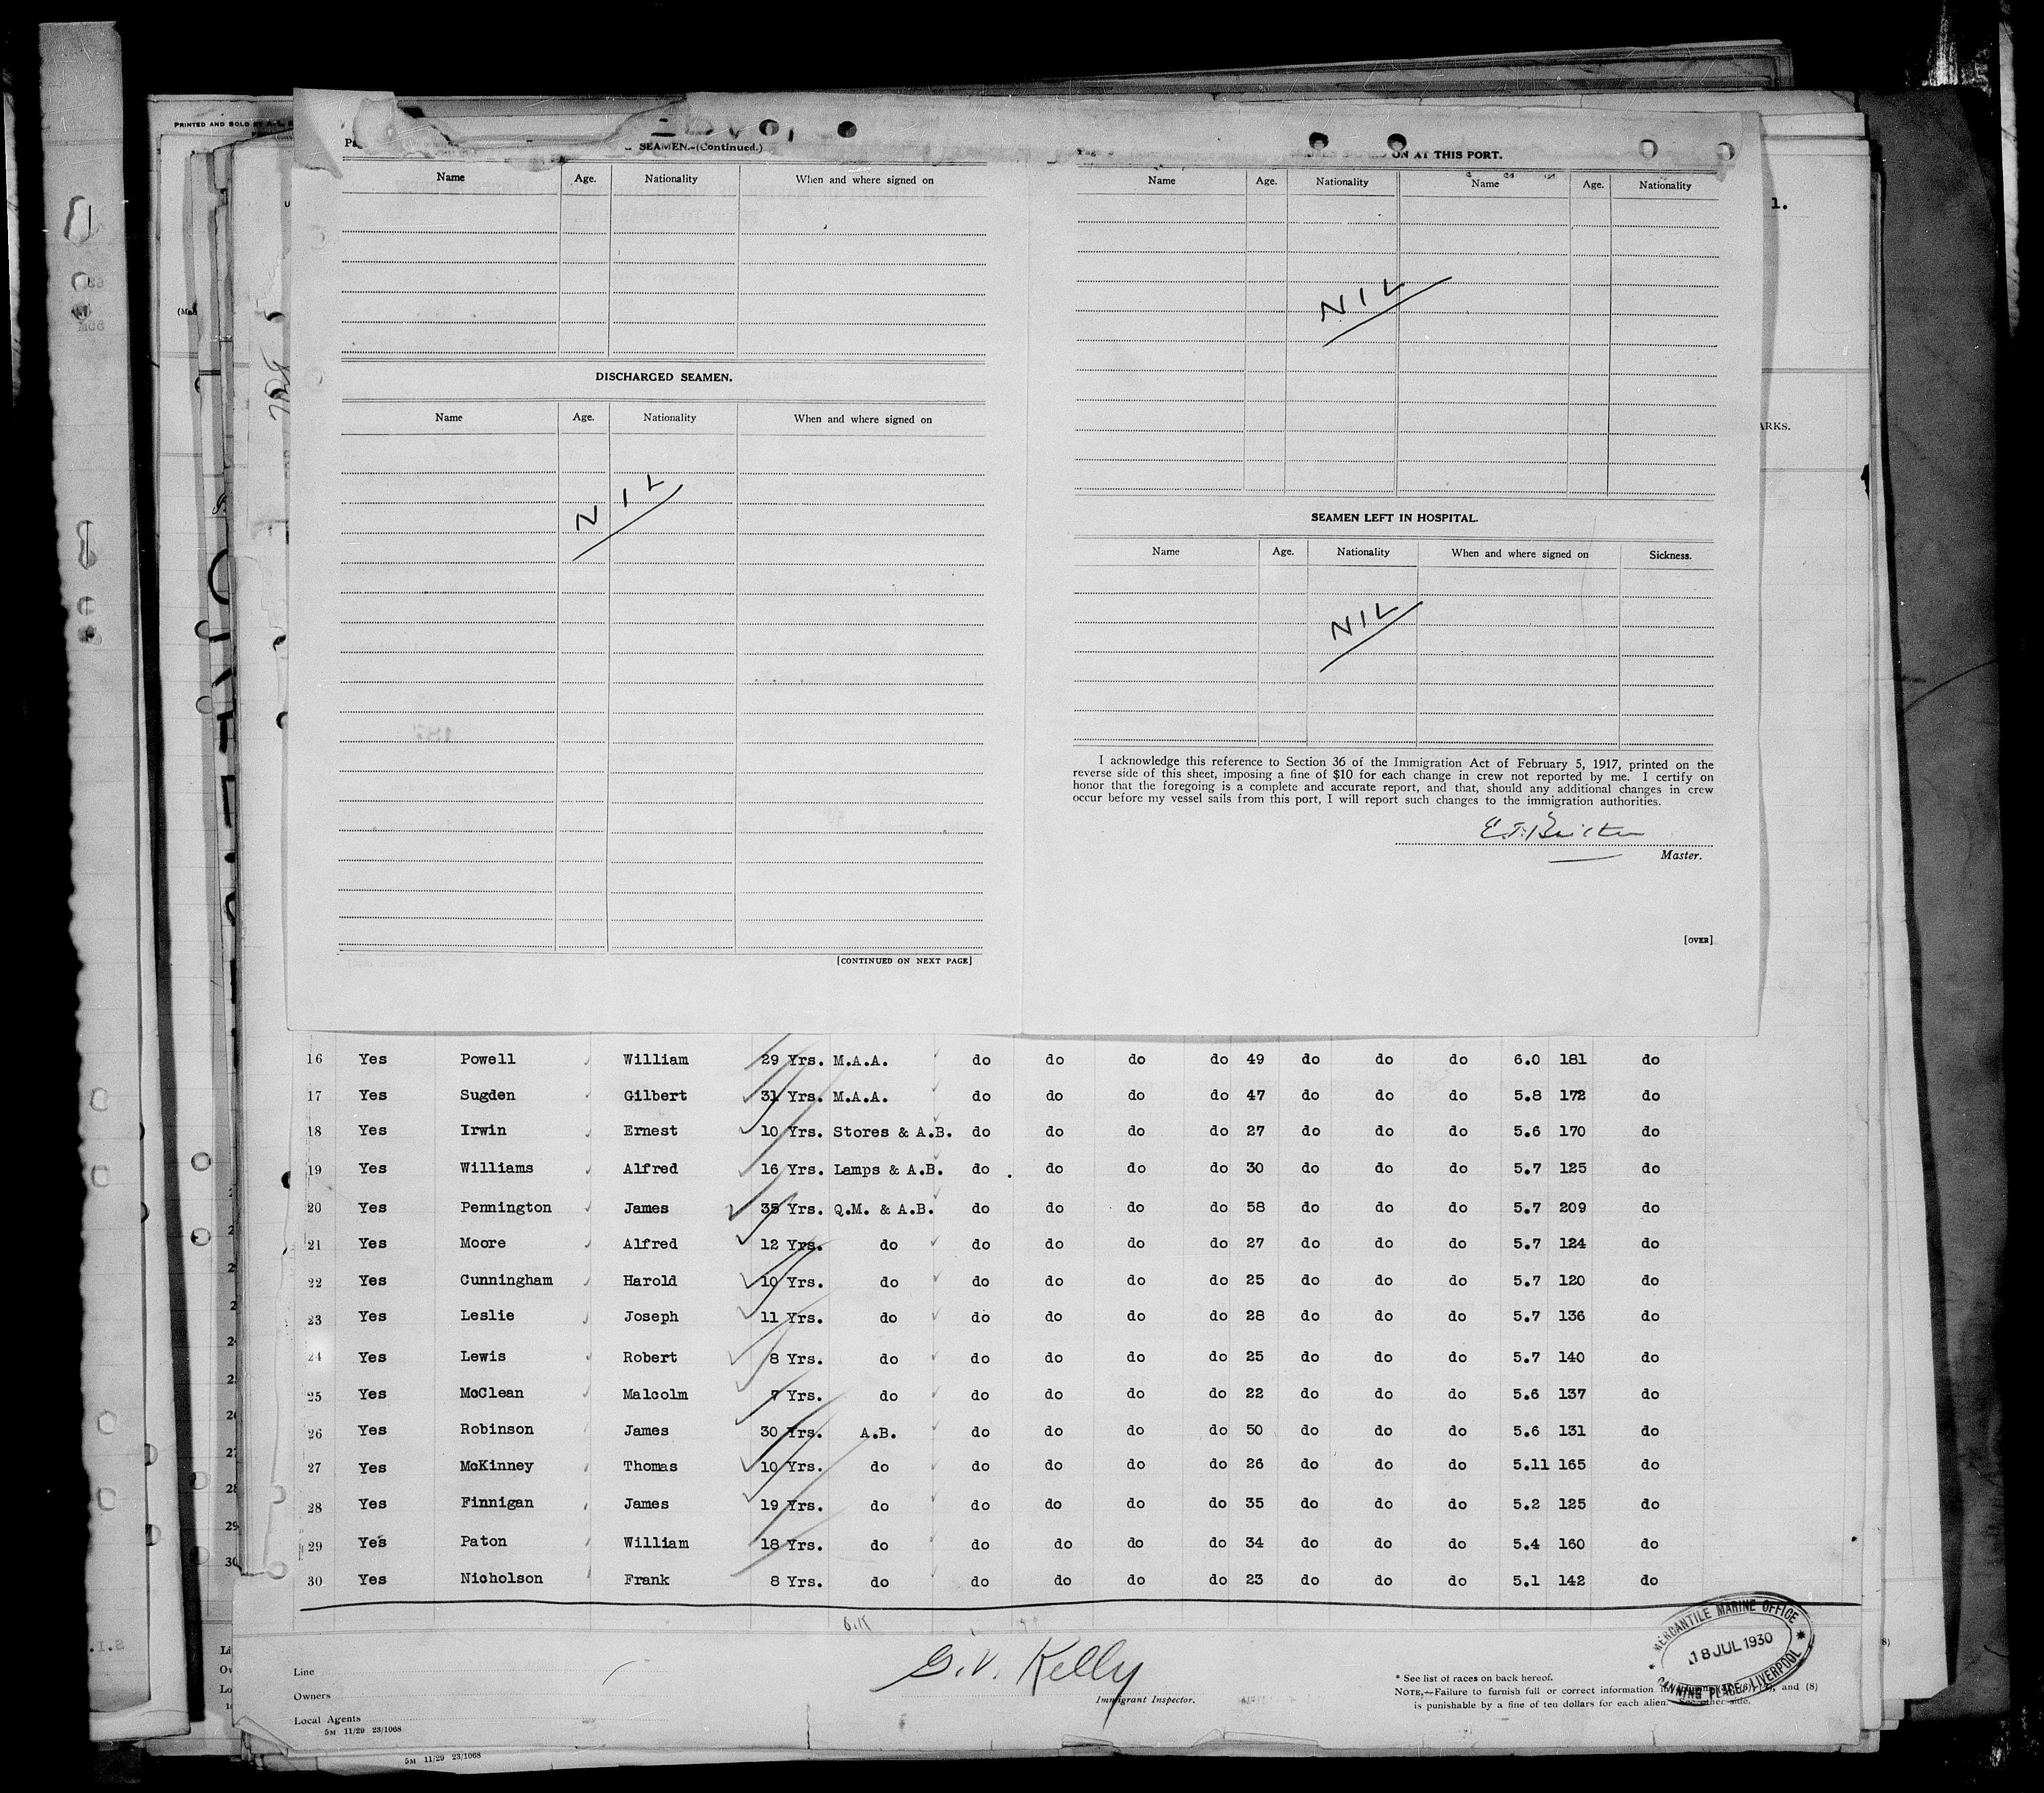 PRINTED AND SOLD BY
SEAMEN.-(Continued.)
Name Age. Nationality When and where signed on
DISCHARGED SEAMEN.
Name Age. Nationality When and where signed on
NIL
[CONTINUED ON NEXT PAGE]
ON AT THIS PORT.
Name Age. Nationality Name Age. Nationality
NIL
SEAMEN LEFT IN HOSPITAL.
Name Age. Nationality When and where signed on Sickness.
NIL
I acknowledge this reference to Section 36 of the Immigration Act of February 5, 1917, printed on the
reverse side of this sheet, imposing a fine of $10 for each change in crew not reported by me. I certify on
honor that the foregoing is a complete and accurate report, and that, should any additional changes in crew
occur before my vessel sails from this port, I will report such changes to the immigration authorities.
Master.
[OVER]
1.
ARKS.
16 Yes Powell William 29 Yrs. M.A.A. do do do do 49 do do do 6.0 181 do
17 Yes Sugden Gilbert 31 Yrs. M.A.A. do do do do 47 do do do 5.8 172 do
18 Yes Irwin Ernest 10 Yrs. Stores & A.B. do do do do 27 do do do 5.6 170 do
19 Yes Williams Alfred 16 Yrs. Lamps & A.B. do do do do 30 do do do 5.7 125 do
20 Yes Pennington James 35 Yrs. Q.M. & A.B. do do do do 58 do do do 5.7 209 do
21 Yes Moore Alfred 12 Yrs. do do do do do 27 do do do 5.7 124 do
22 Yes Cunningham Harold 10 Yrs. do do do do do 25 do do do 5.7 120 do
23 Yes Leslie Joseph 11 Yrs. do do do do do 28 do do do 5.7 136 do
24 Yes Lewis Robert 8 Yrs. do do do do do 25 do do do 5.7 140 do
25 Yes McClean Malcolm 7 Yrs. do do do do do 22 do do do 5.6 137 do
26 Yes Robinson James 30 Yrs. A.B. do do do do 50 do do do 5.6 131 do
27 Yes McKinney Thomas 10 Yrs. do do do do do 26 do do do 5.11 165 do
28 Yes Finnigan James 19 Yrs. do do do do do 35 do do do 5.2 125 do
29 Yes Paton William 18 Yrs. do do do do do 34 do do do 5.4 160 do
30 Yes Nicholson Frank 8 Yrs. do do do do do 23 do do do 5.1 142 do
Line
Owners
Local Agents
5M 11/29 23/1068
G.V. Kelly
Immigrant Inspector.
* See list of races on back hereof.
NOTE.—Failure to furnish full or correct information and (8)
is punishable by a fine of ten dollars for each alien. See other side.
MERCANTILE MARINE OFFICE
18 JUL 1930
CANNING PLACE, LIVERPOOL
5M 11/29 23/1068